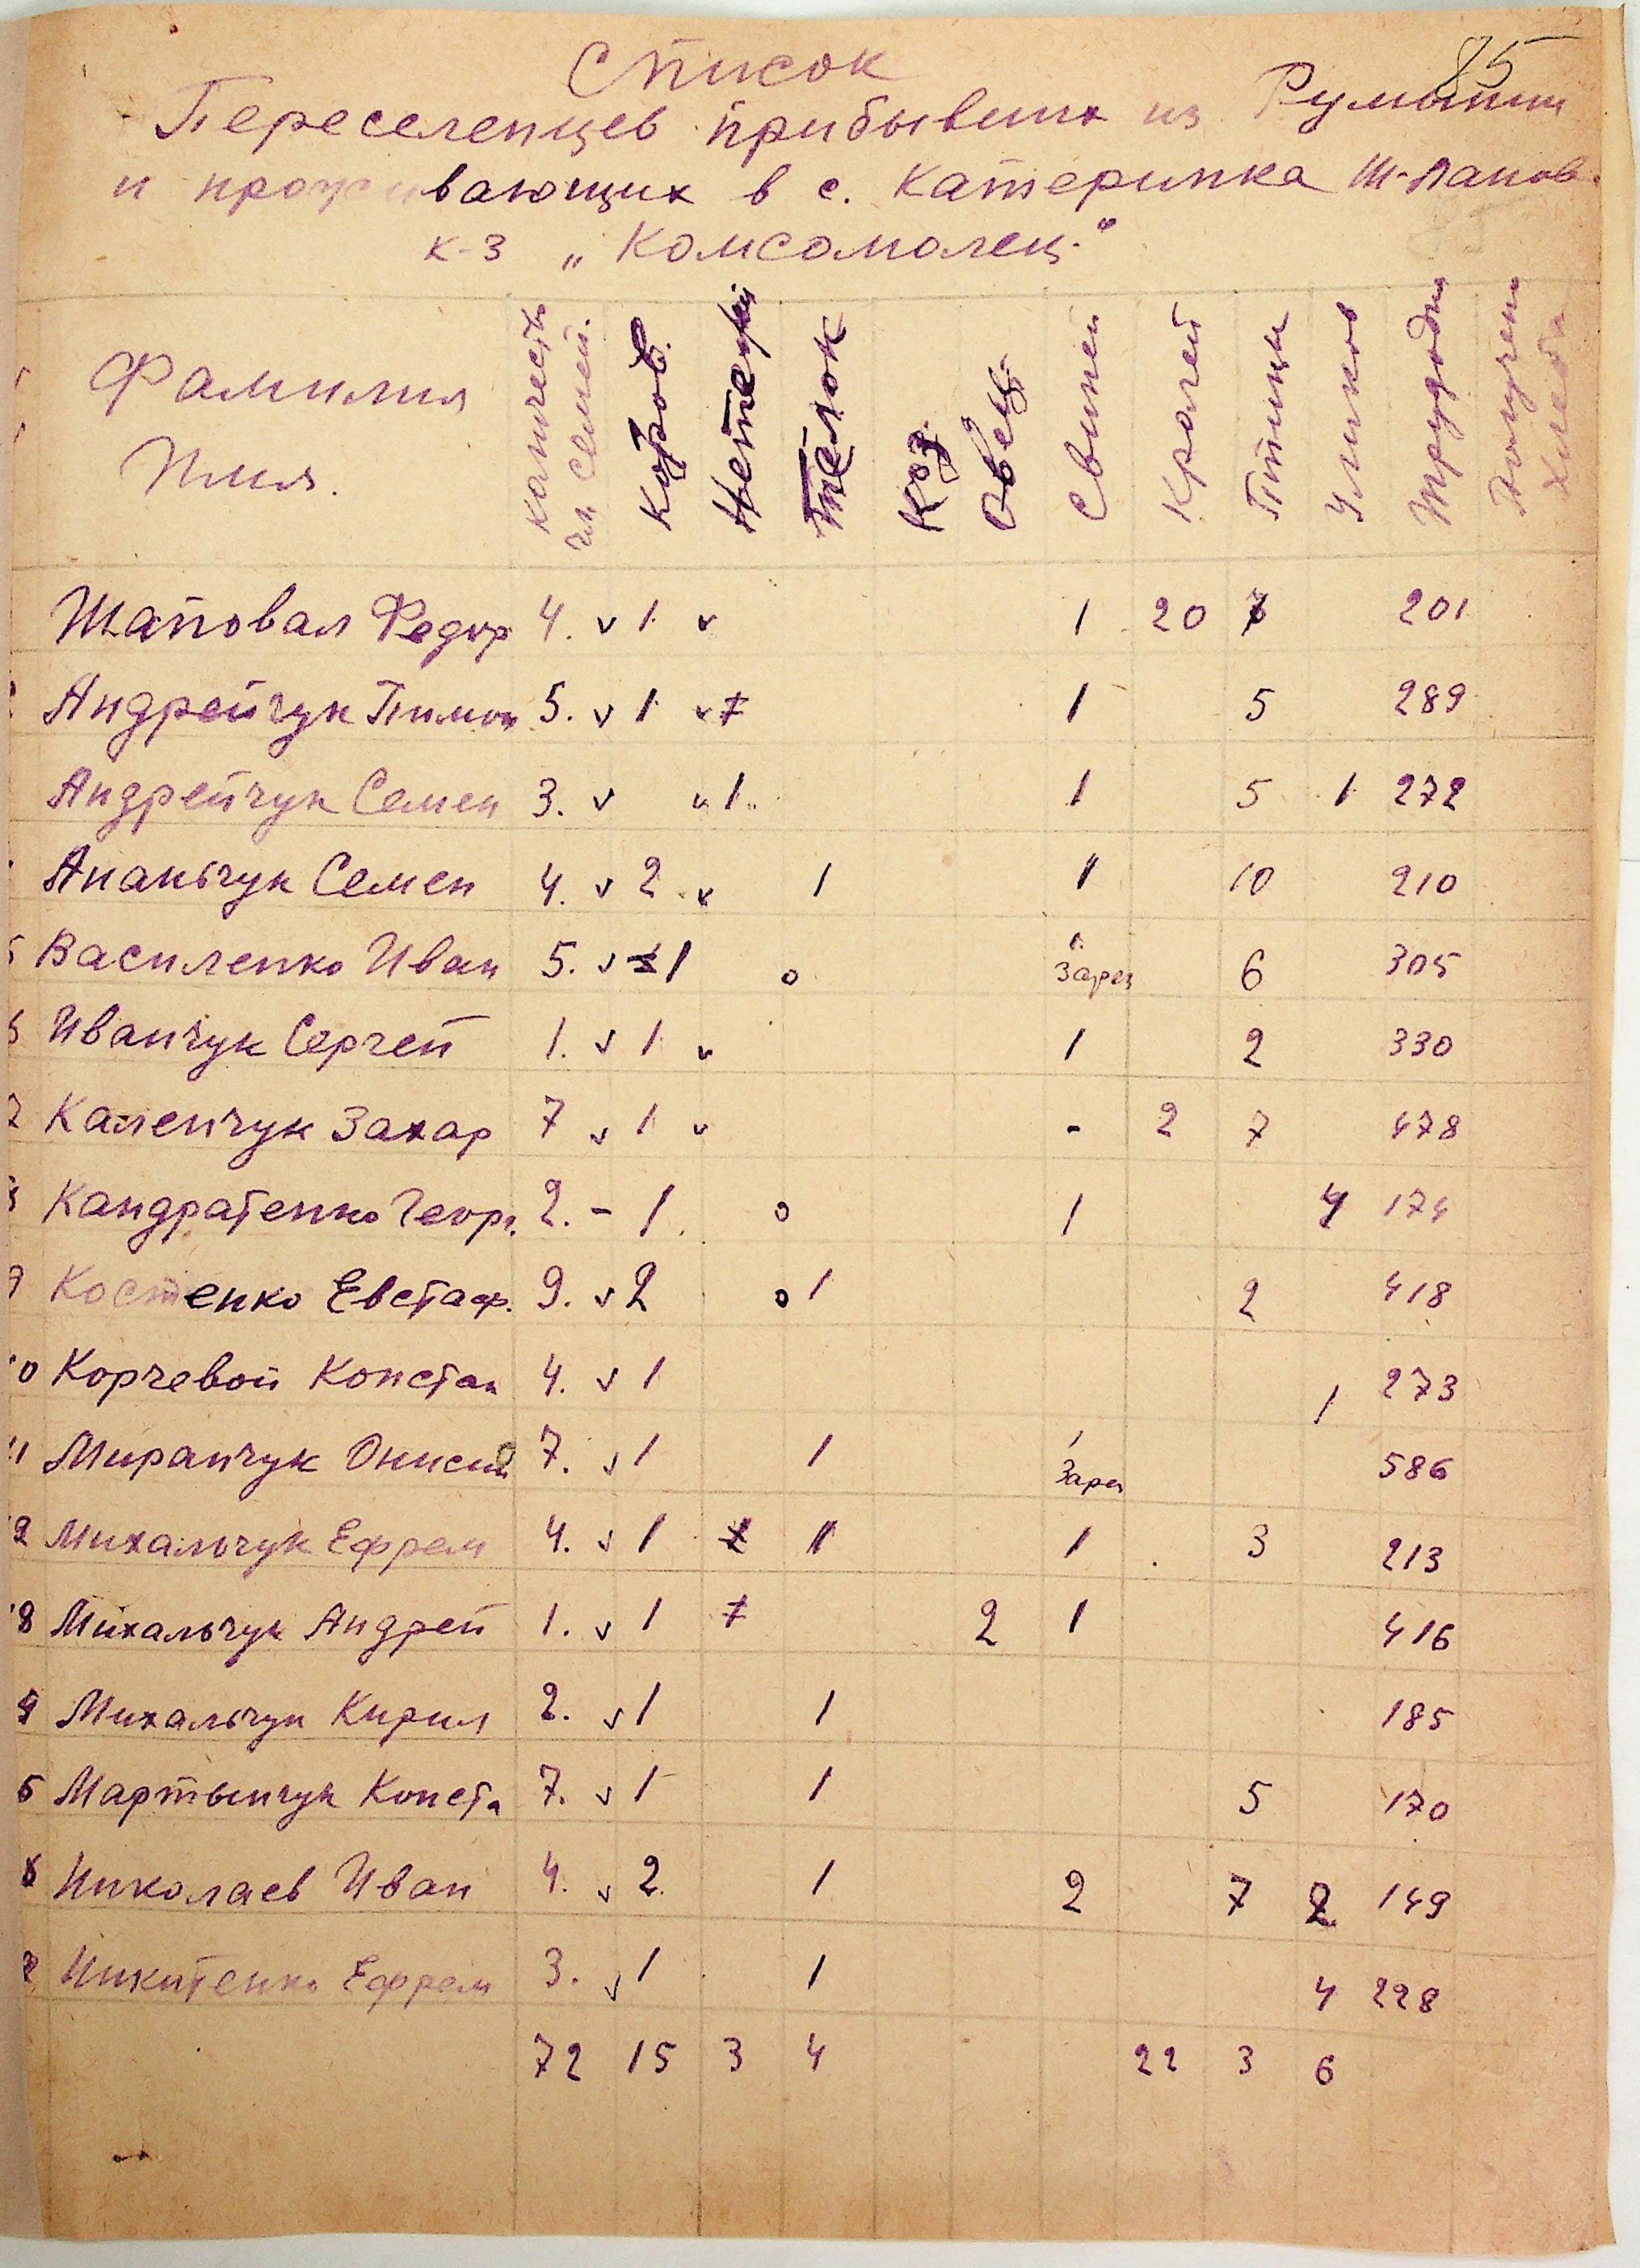 85
Список
Переселенцев прибывших из Румынии
и проживающих в с. Катеринка Ш-Лапов.
к-з „Комсомолец."
Фамилия Имя. Количеств чл. семей. Коров. Нетелей Телок Коз Овец Свиней Кролей Птицы Уликов Трудодни Получено хлеба
Шаповал Федор 4. v 1 v 1 20 201
Андрейчук Пимон 5. v 1 v 1 5 289
Андрейчук Семен 3. v „1„ 1 5 1 272
Ананьчук Семен 4. v 2 v 1 1 10 210
5 Василенко Иван 5. v 1 о 1. Зарез 6 305
6 Иванчук Сергей 1. v 1 v 1 2 330
7 Каленчук Захар 7 v 1 v - 2 7 478
Кандратенко Геор. 2. - 1 о 1 4 174
9 Костенко Евстаф. 9. v 2 о 1 2 418
10 Корчевой Констан 4. v 1 1 273
11 Миранчук Онисий 7. v 1 1 1 Зарез 586
12 Михальчук Ефрем 4. v 1 1 1 3 213
Михальчук Андрей 1. v 1 2 1 416
Михальчук Кирил 2. v 1 1 185
5 Мартынчук Конста 7. v 1 1 5 170
6 Николаев Иван 4. v 2. 1 2 7 2 149
Никитенко Ефрем 3. v 1 1 4 228
72 15 3 4 22 3 6